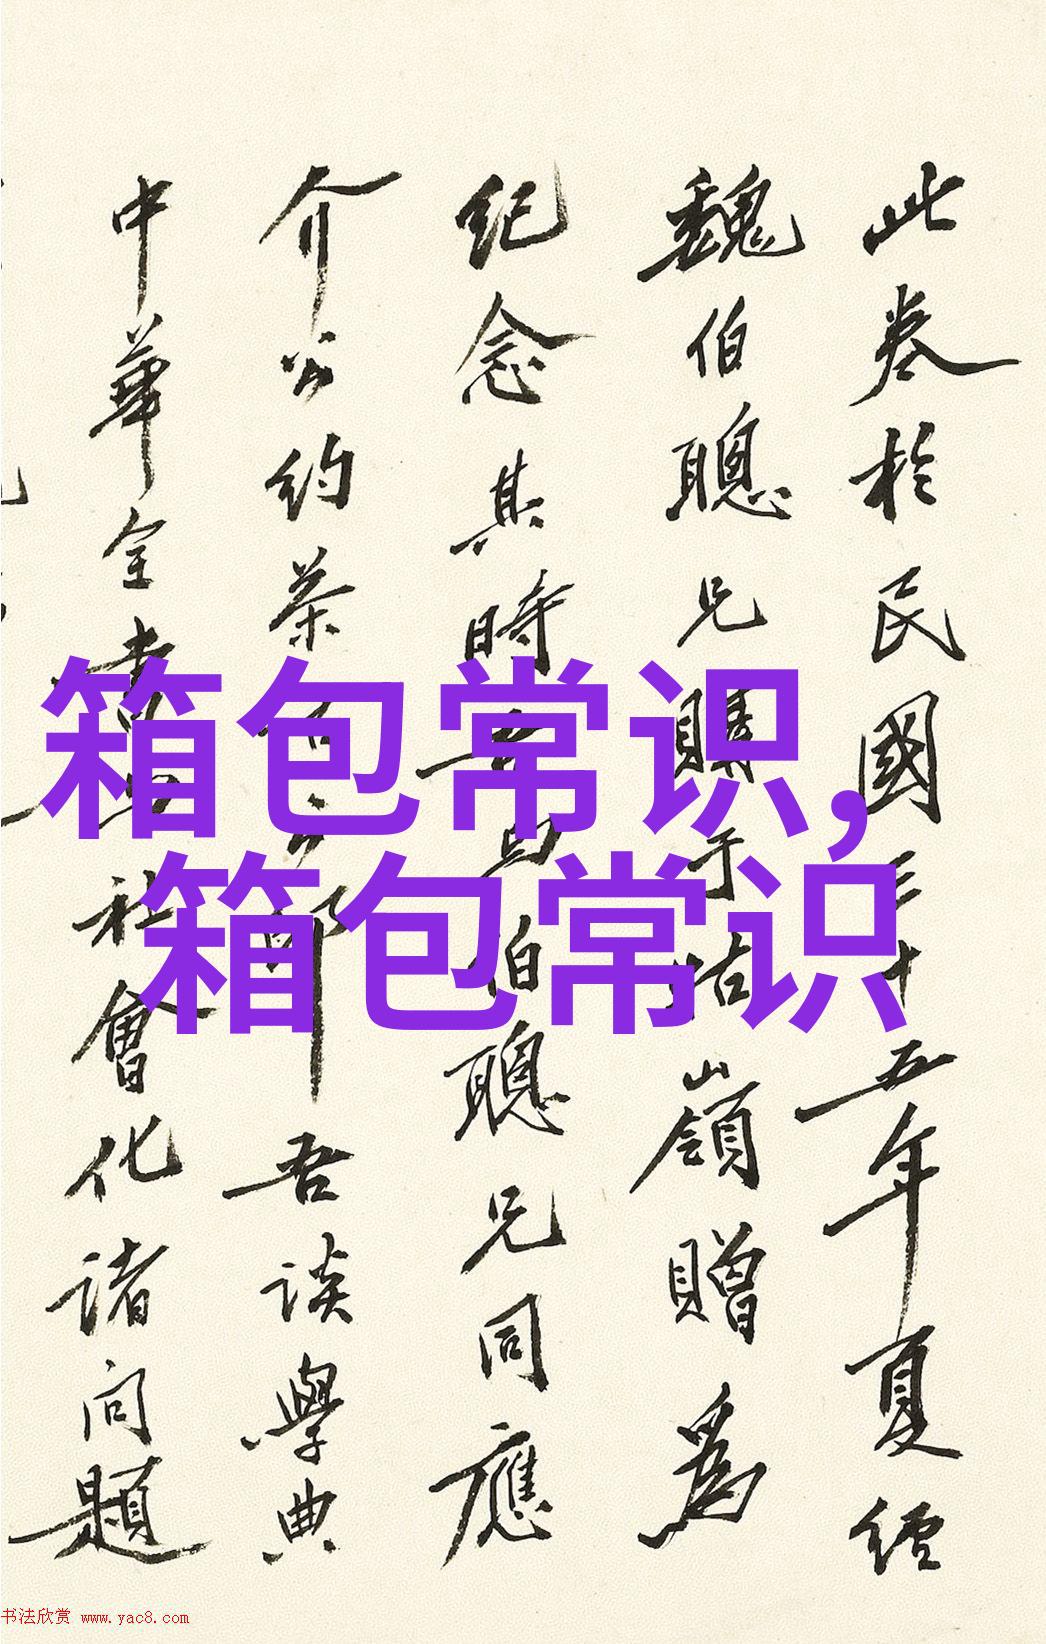 此卷於民國三十五年夏經
魏伯聰兄購于牯嶺贈為
紀念其時吾與伯聰兄同應
介公約茶 吾談學典
中華全書與社會化諸问題
箱包常识,
箱包常识
书法欣赏 www.yac8.com